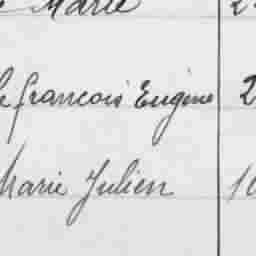 Marie 2
le françois Eugène 2
Marie Julien 10